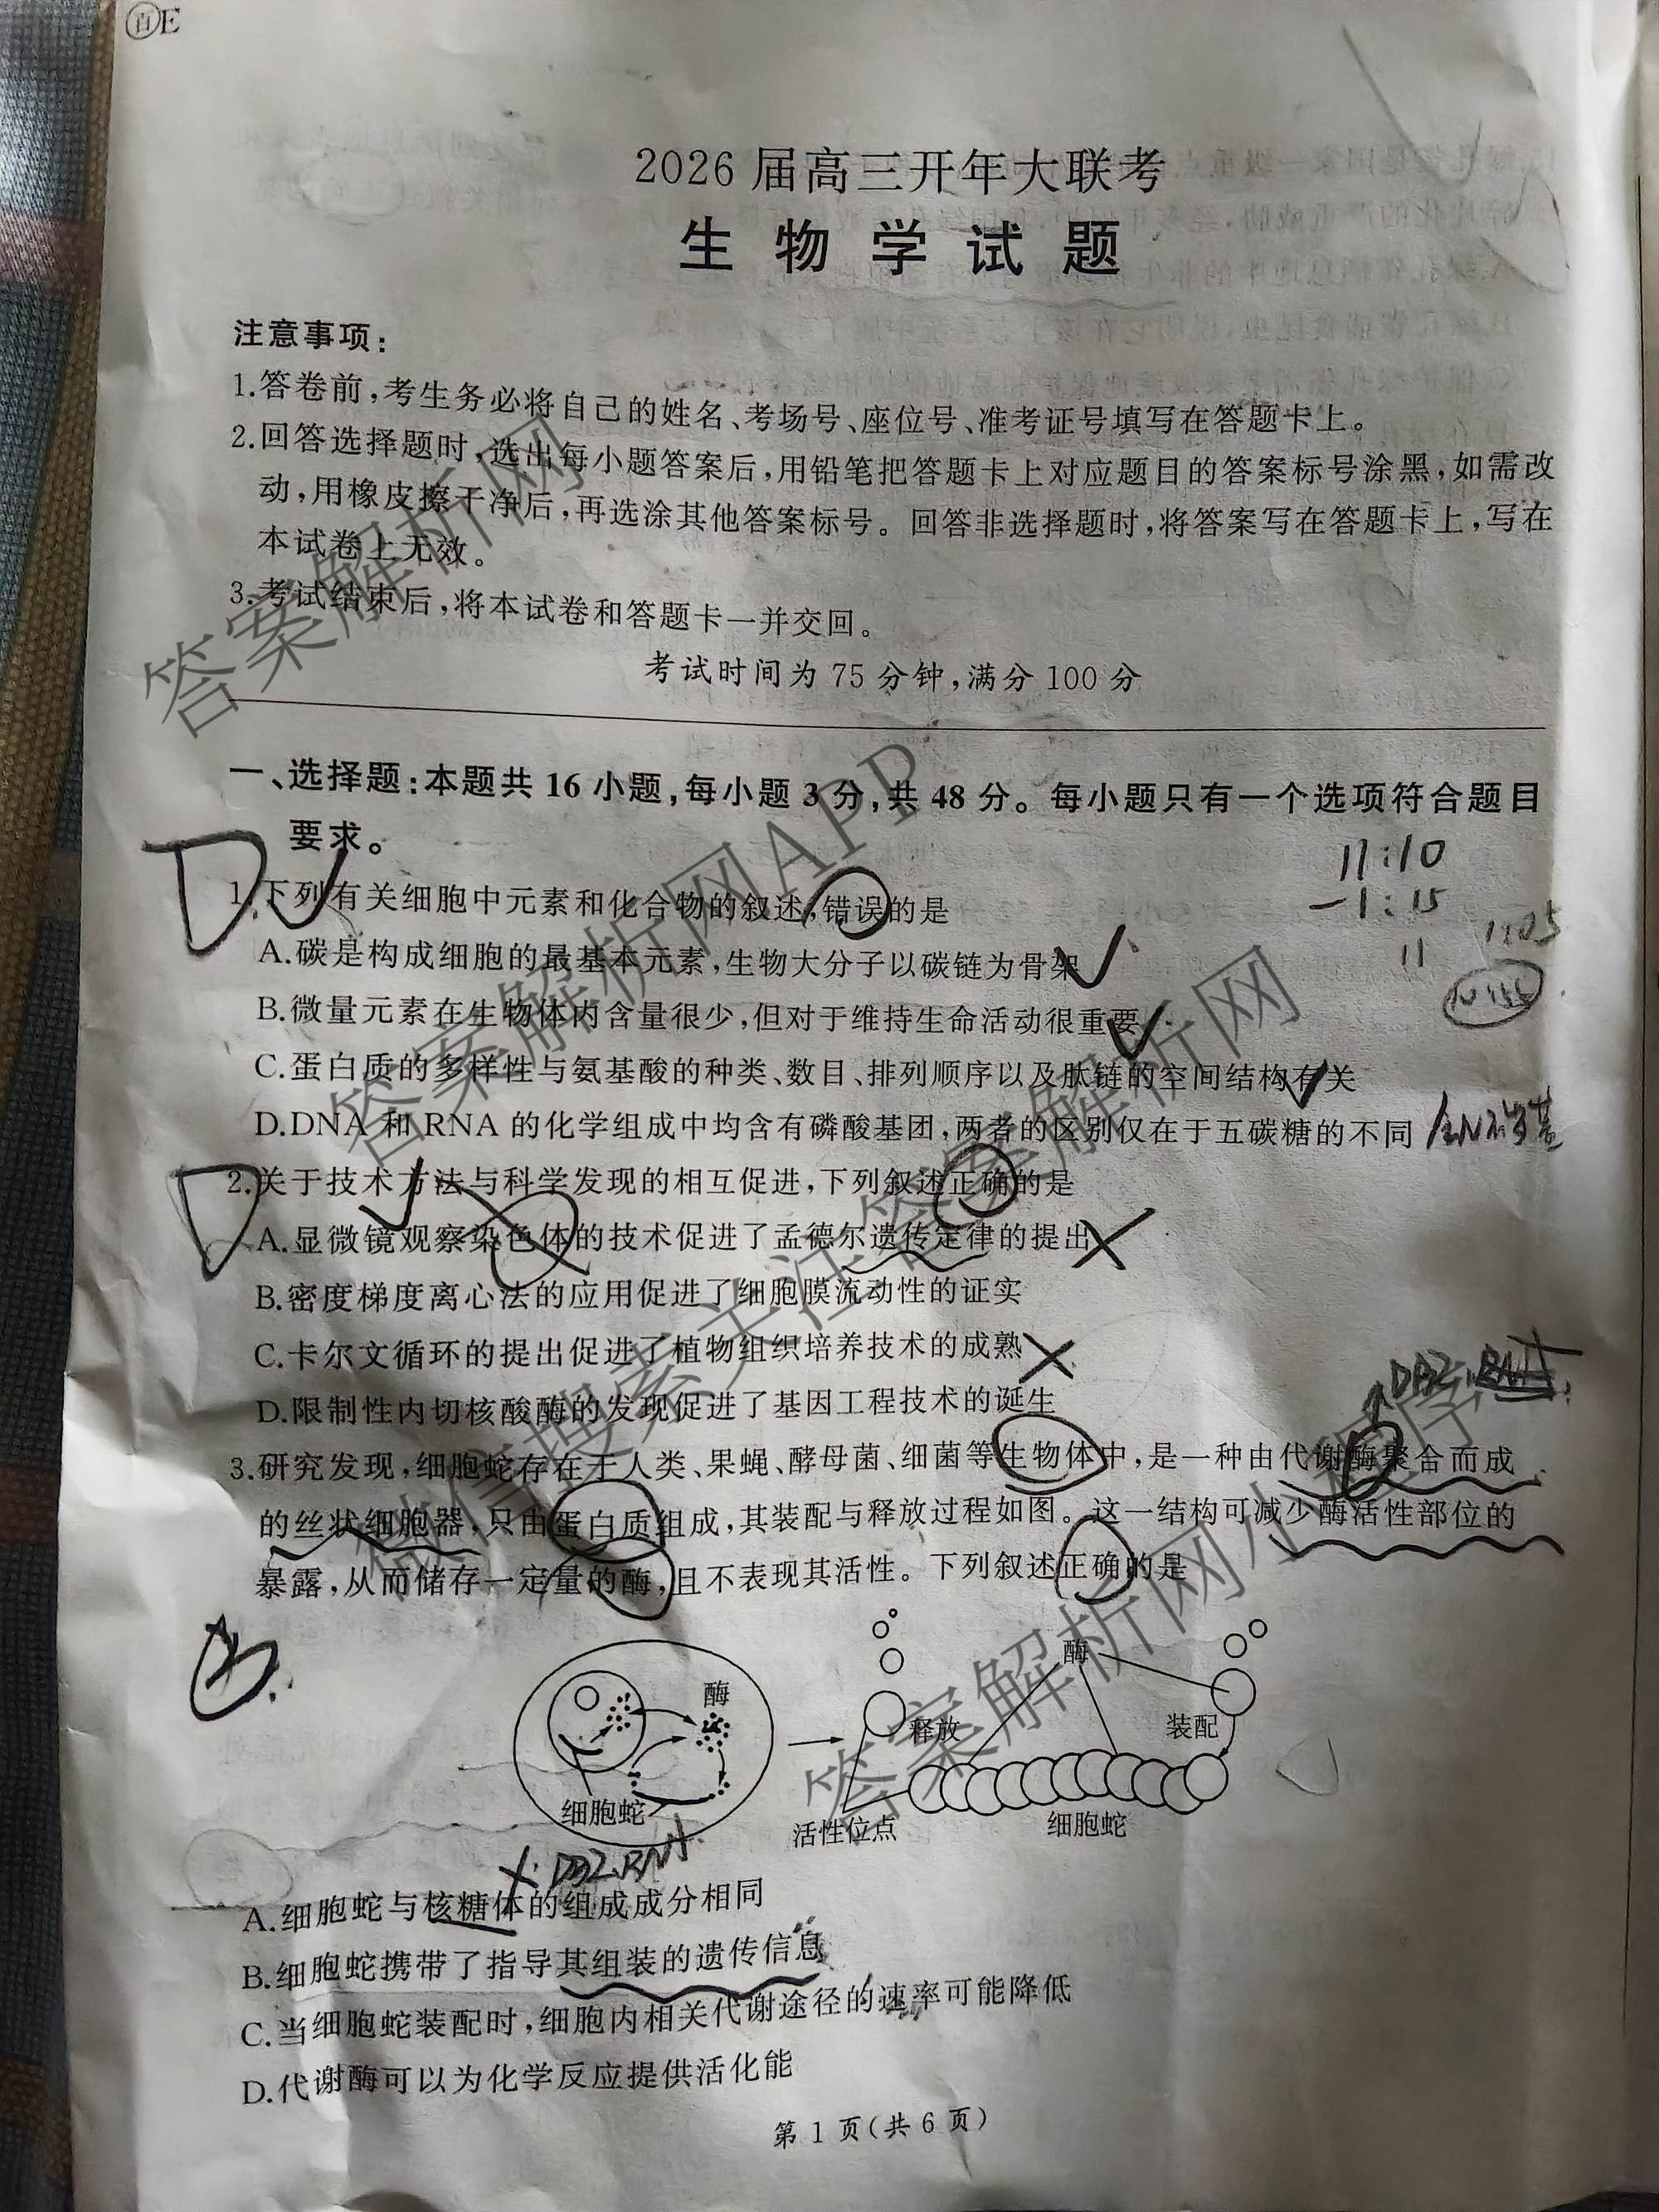 百E
2026届高三开年大联考
生物学试题
注意事项:
1.答卷前,考生务必将自己的姓名、考场号、座位号、准考证号填写在答题卡上。
2.回答选择题时,选出每小题答案后,用铅笔把答题卡上对应题目的答案标号涂黑,如需改
动,用橡皮擦干净后,再选涂其他答案标号。回答非选择题时,将答案写在答题卡上,写在
本试卷上无效。
3.考试结束后,将本试卷和答题卡一并交回。
考试时间为75分钟,满分100分
一、选择题:本题共16小题,每小题3分,共48分。每小题只有一个选项符合题目
要求。
11:10
-1:15
11
D
1.下列有关细胞中元素和化合物的叙述,错误的是
A.碳是构成细胞的最基本元素,生物大分子以碳链为骨架
B.微量元素在生物体内含量很少,但对于维持生命活动很重要
C.蛋白质的多样性与氨基酸的种类、数目、排列顺序以及肽链的空间结构有关
D.DNA和RNA的化学组成中均含有磷酸基团,两者的区别仅在于五碳糖的不同
D
2.关于技术方法与科学发现的相互促进,下列叙述正确的是
A.显微镜观察染色体的技术促进了孟德尔遗传定律的提出
B.密度梯度离心法的应用促进了细胞膜流动性的证实
C.卡尔文循环的提出促进了植物组织培养技术的成熟
D.限制性内切核酸酶的发现促进了基因工程技术的诞生
3.研究发现,细胞蛇存在于人类、果蝇、酵母菌、细菌等生物体中,是一种由代谢酶聚合而成
的丝状细胞器,只由蛋白质组成,其装配与释放过程如图。这一结构可减少酶活性部位的
暴露,从而储存一定量的酶,且不表现其活性。下列叙述正确的是
酶
细胞蛇
释放
酶
装配
活性位点
细胞蛇
A.细胞蛇与核糖体的组成成分相同
B.细胞蛇携带了指导其组装的遗传信息
C.当细胞蛇装配时,细胞内相关代谢途径的速率可能降低
D.代谢酶可以为化学反应提供活化能
第1页(共6页)
答案解析网
答案解析网APP
微信搜索关注答案解析网
答案解析网小程序